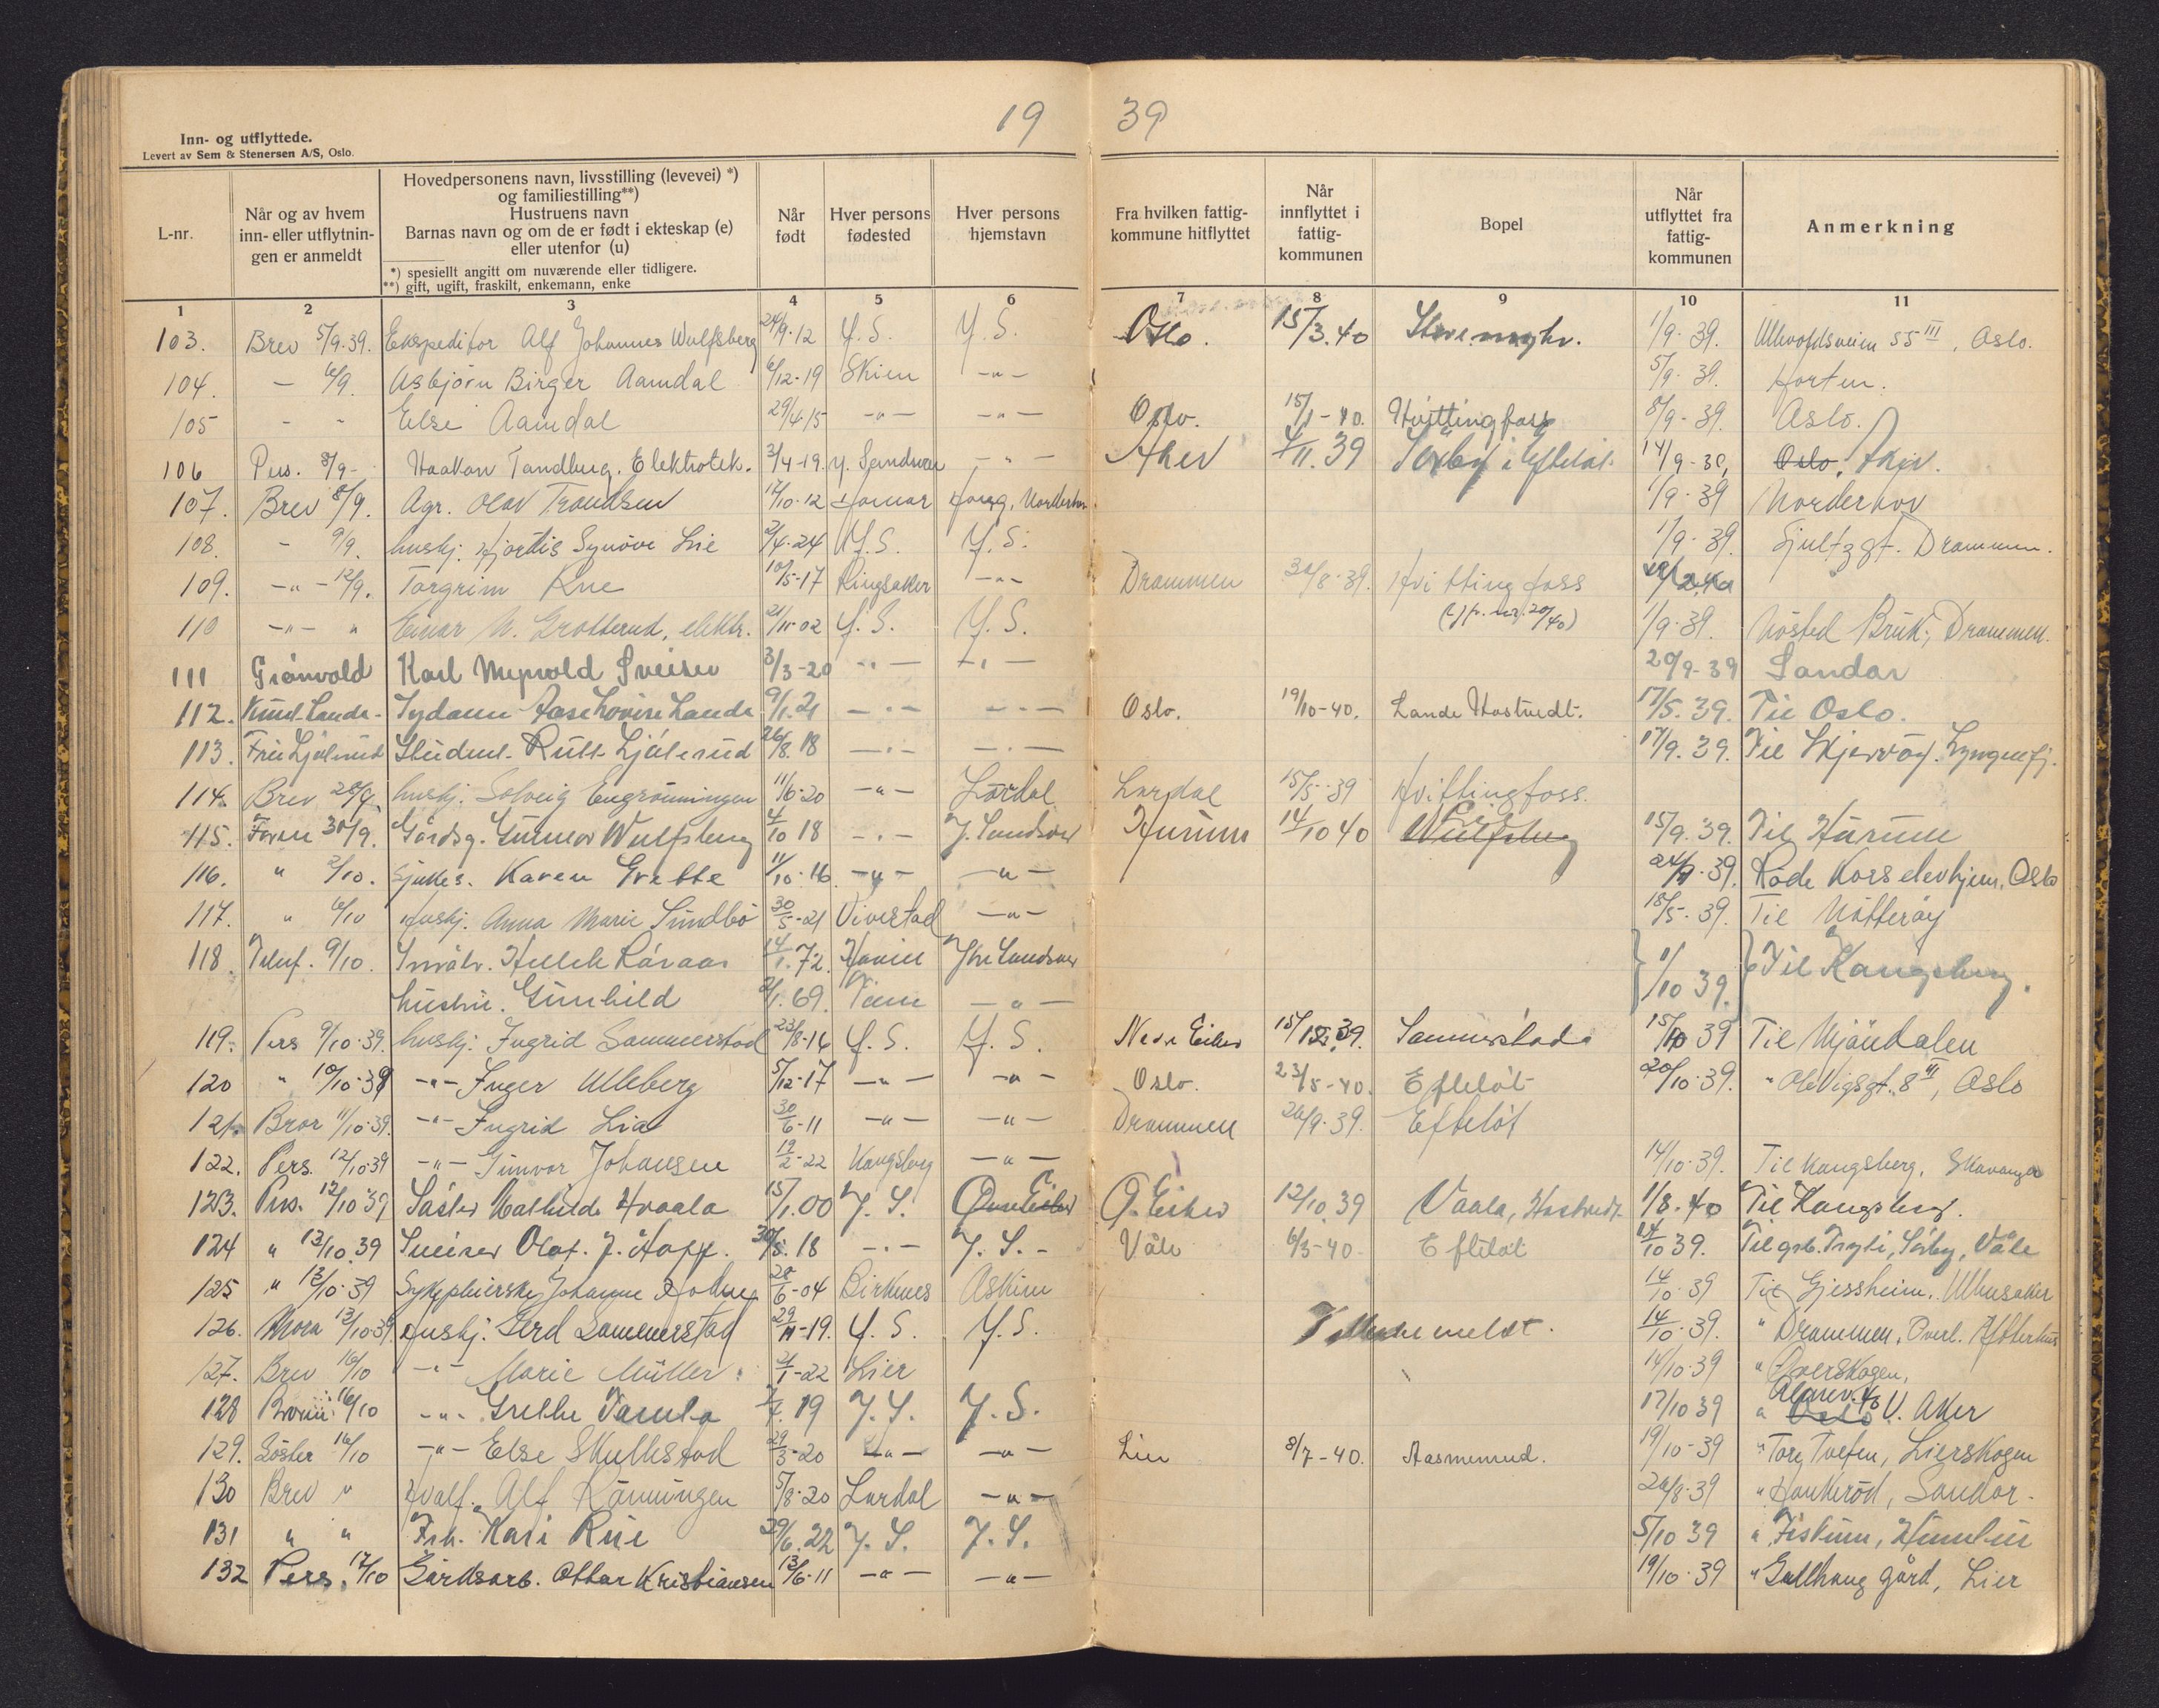 19 39
Inn- og utflyttede.
Levert av Sem & Stenersen A/S, Oslo.
L-nr.
Når og av hvem
inn- eller utflytnin-
gen er anmeldt
Hovedpersonens navn, livsstilling (levevei) *)
og familiestilling**)
Hustruens navn
Barnas navn og om de er født i ekteskap (e)
eller utenfor (u)
*) spesiellt angitt om nuværende eller tidligere.
**) gift, ugift, fraskilt, enkemann, enke
Når
født
Hver persons
fødested
Hver persons
hjemstavn
Fra hvilken fattig-
kommune hitflyttet
Når
innflyttet i
fattig-
kommunen
Bopel
Når
utflyttet fra
fattig-
kommunen
Anmerkning
1 2 3 4 5 6 7 8 9 10 11
103. Brev 5/9.39. Ekspeditor Alf Johannes Wulfsberg 24/9.12 Y.S. Y.S. Oslo. 15/3.40 1/9.39. Ullevoldsveien 55 III, Oslo.
104. — 6/9. Asbjørn Birger Aamdal 6/12-19 Skien -"- 5/9.39. Horten.
105 - - Else Aamdal 29/4.15 -"- -"- Oslo. 15/1-40. Hvittingfoss 8/9-39. Oslo.
106 Pers. 8/9- Haakon Tandberg. Elektrotek. 3/4-19. Y. Sandsvær -"- Aker 4/11.39 Sørby i Efteløt. 14/9-39.
107. Brev 8/9. Agr. Olav Trondsen 17/10-12 Norderhov 1/9-39 Norderhov
108. - 9/9. huskj. Hjørdis Synøve Lie 2/4-24 Y.S. Y.S. 1/9.39. Drammen.
109. -"- 12/9. Torgrim Rue 10/5-17 Ringsaker -"- Drammen 30/8-39. Hvittingfoss
110 -"- " Einar N. Grotterud, elektr. 21/11-02 Y.S. Y.S. (Jfr. nr. 20/40) 1/9.39. Nøsted Bruk, Drammen.
111 Grønvold Karl Sveiser 3/3-20 -"- -"- 20/9-39 Sandar
112. Knut Lande - Sydame Aase Lovise Lande 9/1.21 -"- -"- Oslo. 19/10-40. Lande Hostvedt. 17/5.39. Til Oslo.
113. Student Rutt Ljøterud 26/8.18 -"- -"- 17/9.39. Til Skjervøy. Lyngenfj.
114. Brev 28/9. huskj. Solveig Engrønningen 11/6-20 -"- Lardal Lardal 15/5-39 Hvittingfoss.
115. Faren 30/9. Gårdsg. Gunnar Wulfsberg 4/10 18 -"- Y. Sandsvær Hurum 14/10 40 Wulfsberg 15/9.39. Til Hurum
116. " 2/10. Sjukes. Karen Grette 11/10-16 -"- -"- 24/9.39. Røde Kors elevhjem, Oslo
117. " 6/10 Huskj. Anna Marie Sundbø 30/5-21 Vivestad -"- 18/5.39. Til Nøtterøy
118. Telef. 9/10. Småbr. Helleik Råvaas 14/1.72. Ytre Sandsvær 1/10 39. Til Kongsberg.
hustru. Gunhild 2/1.69. -"-
119. Pers 9/10.39. huskj. Ingrid Sommerstad 23/8-16 Y.S. Y.S. Nedre Eiker 15/12.39. Sommerstad 15/10 39 Til Mjøndalen
120 " 10/10.39 -"- Inger Ulleberg 5/12-17 -"- -"- Oslo. 23/5-40. Efteløt 20/10.39. " Ole Vigsgt. 8 III, Oslo
121. Bror 11/10.39. -"- Ingrid Lia 30/6-11 -"- -"- Drammen 26/9.39. Efteløt
122. Pers. 12/10.39 -"- Gunvor Johansen 19/2-22 Kongsberg -"- 14/10.39. Til Kongsberg.
123. Pers. 12/10 39 Søster Mathilde Hvaala 15/1.00 Y.S. Ø. Eiker 12/10.39 Vaala, Hostvedt. 1/8.40 Til Kongsberg.
124 " 13/10.39 Sveiser Olaf. J. Hopp. 30/8.18 -"- Y.S. - Våle 6/3-40. Efteløt 14/10 39. Våle
125 " 13/10.39 Sykepleierske Johanne 28/6-04 Birkenes Askim 14/10.39 Til Gjessheim, Ullensaker
126. Mora 13/10.39. huskj. Gerd Sommerstad 29/11-19. Y.S. Y.S. 14/10.39. " Drammen.
127. Brev 16/10 -"- Marie Müller. 21/1-22 Lier 14/10.39 " Overskogen,
128 16/10 -"- Grethe Tamla 19 Y.S. Y.S. 17/10 39 " V. Aker
129. Søster 16/10 -"- Else Skullestad 29/3-20 -"- -"- Lier 8/7-40. Aasmerud. 19/10-39 " Tore Tveten, Lierskogen
130 Brev " Alf Rønningen 5/8-20 Lardal -"- 20/8.39 " Haukerød, Sandar.
131 " " Frk. Kari Rue 29/6.22 Y.S. Y.S. 5/10 39 " Fiskum,
132 Pers. 17/10 Gårdsarb. Ottar Kristiansen 13/6-11 -"- -"- 19/10.39 " Gullhaug gård, Lier